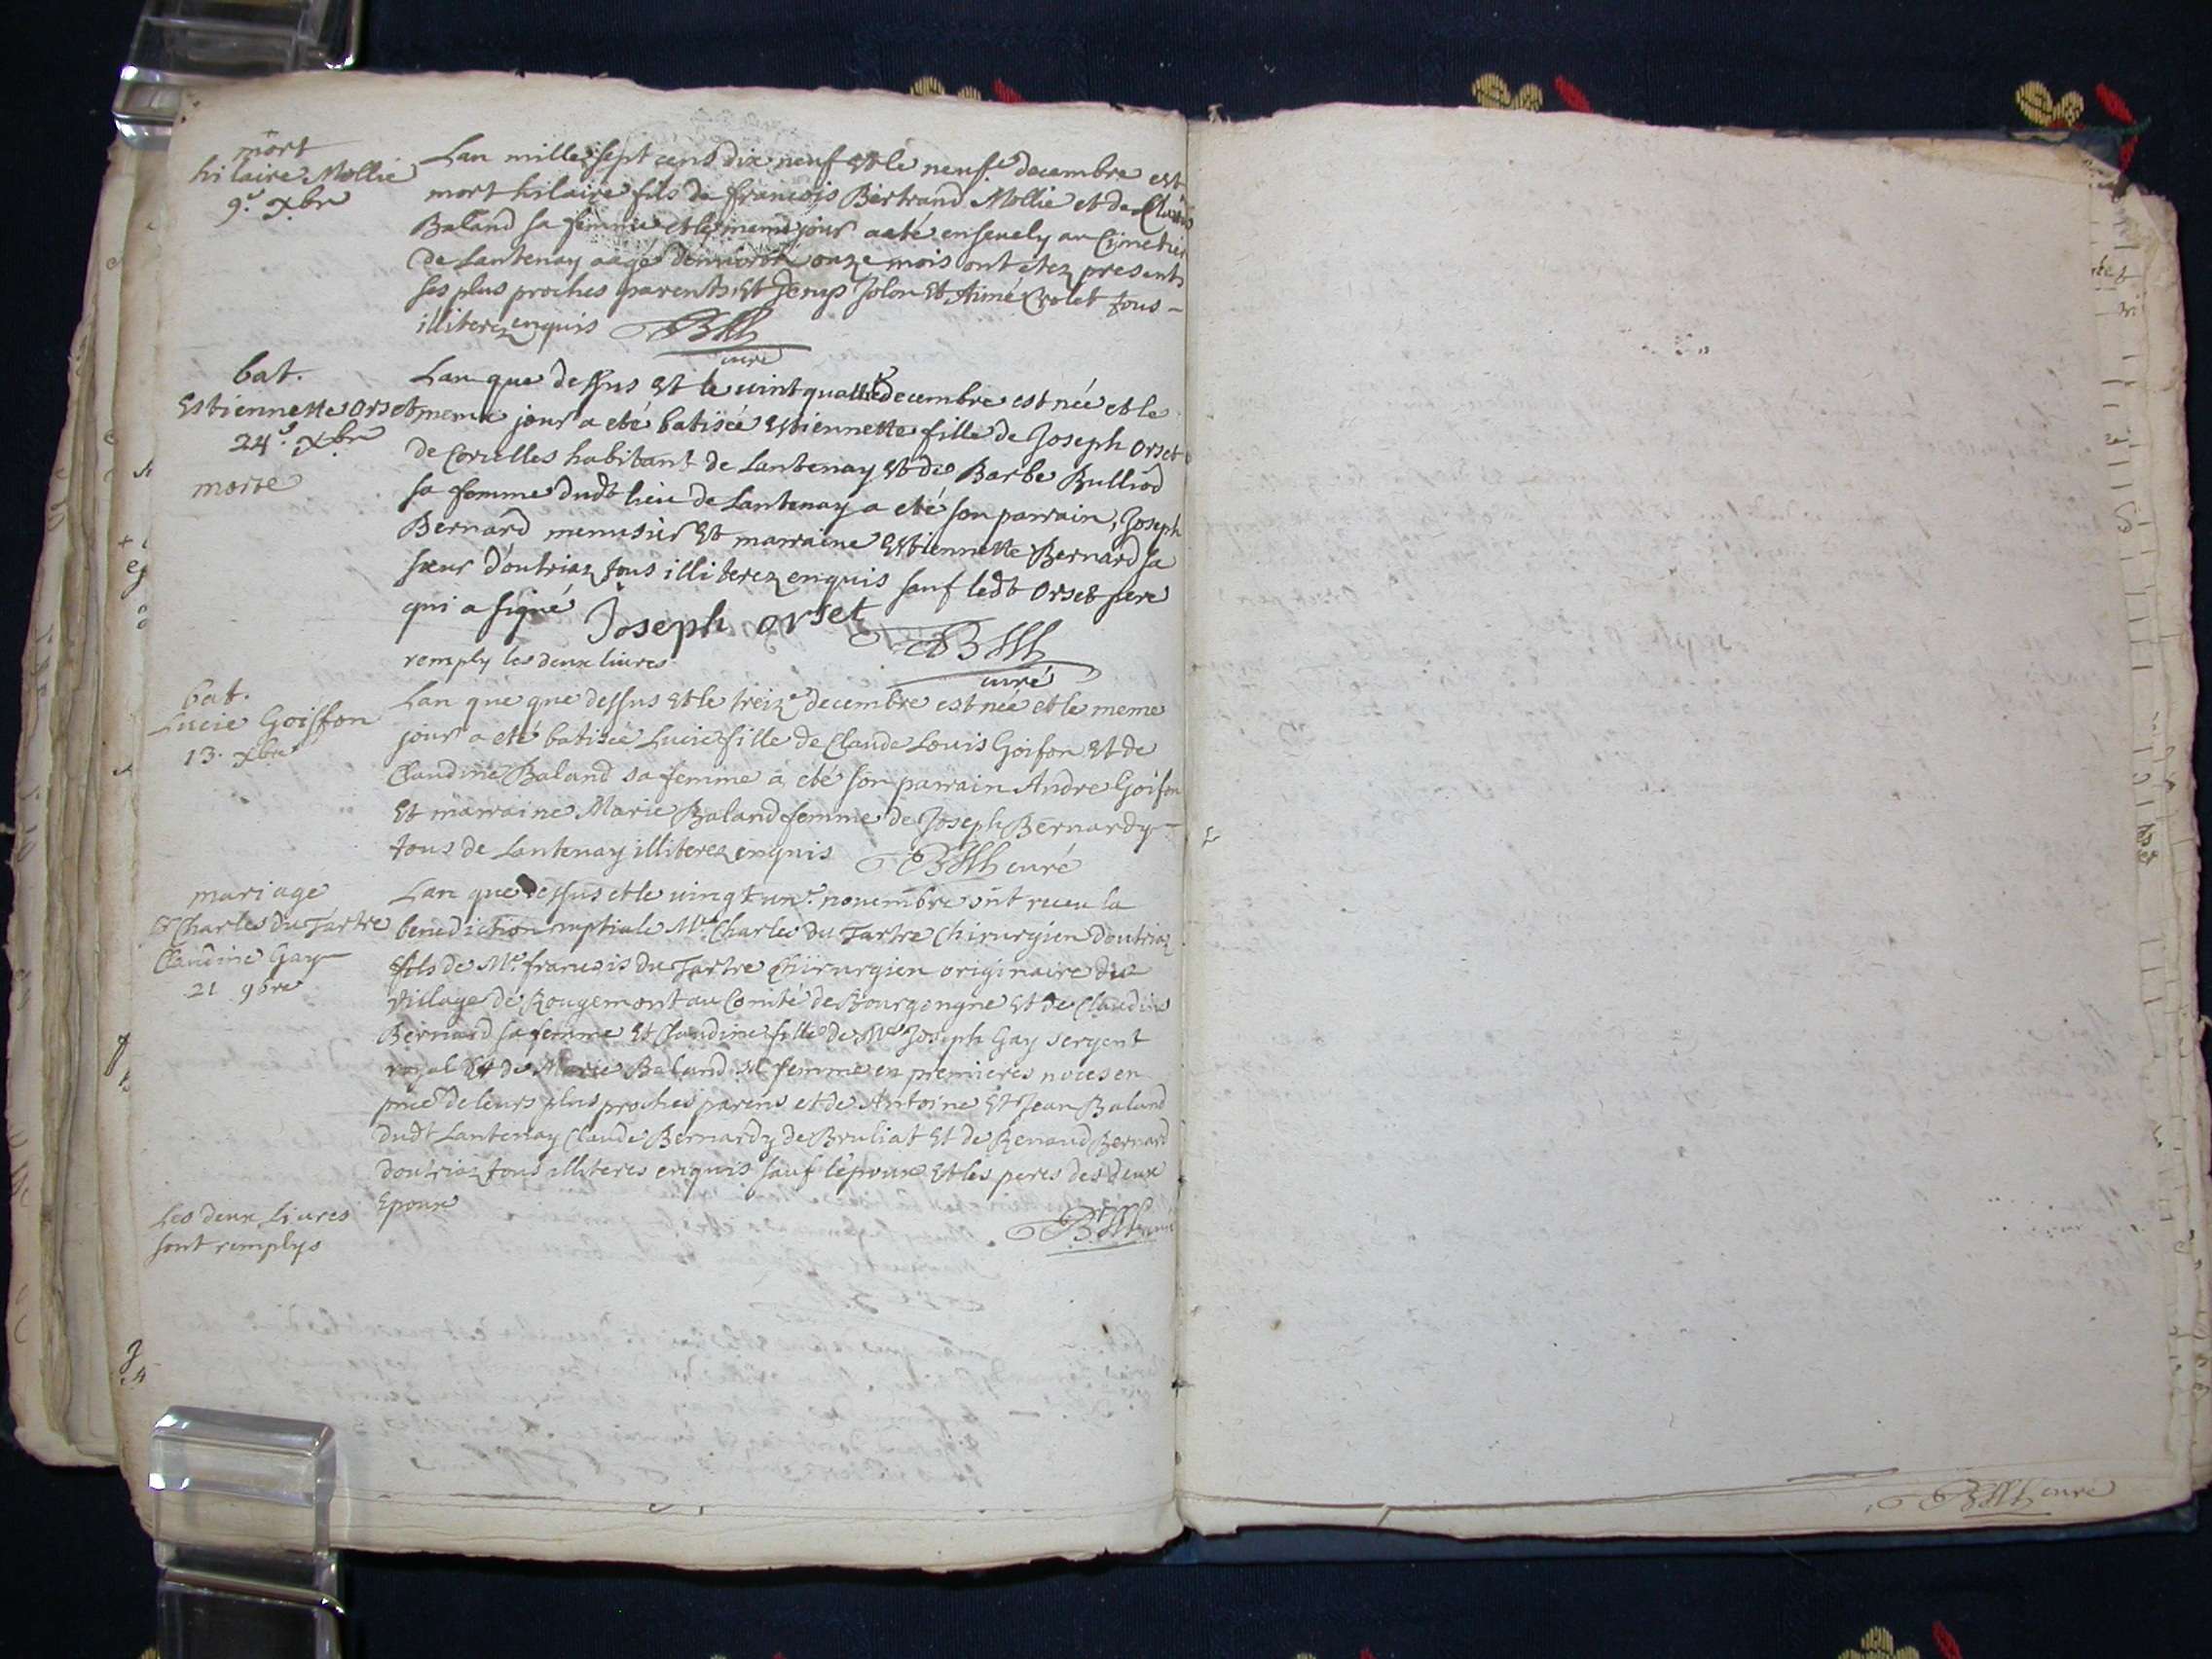 mort
hilaire Mollie
9.e xbre
Lan mille sept cens dix neuf et le neuf.e decembre est
mort hilaire fils de francois Bertrand Mollie et de
Baland sa femme et le meme jour a eté ensevely au Cimetier
de Lantenay aagé denviron onze mois ont etez presents
ses plus proches parents Et Jolon Et Aimé Crolet tous
illiterez enquis
curé
bat.
Estiennette Orset
24.e xbre
morte
Lan que dessus Et le vint quatre decembre est née et le
meme jour a eté batisée Estiennette fille de Joseph Orset
de Corcelles habitant de Lantenay Et de Barbe Bulliod
sa femme dudt lieu de Lantenay a eté son parrain, Joseph
Bernard menusier Et marraine Estiennette Bernard sa
sœur d'outriaz tous illiterez enquis sauf ledt Orset pere
qui a signé Joseph orset
curé
remply les deux livres
bat.
Lucie Goiffon
13. xbre
Lan que que dessus Et le treiz.e decembre est née et le meme
jour a eté batisée Lucie fille de Claude Louis Goifon Et de
Claudine Baland sa femme a eté son parrain Andre Goifon
Et marraine Marie Baland femme de Joseph Bernardy
tous de Lantenay illiterez enquis curé
mariage
Charles du Tartre
Claudine Gay
21 9bre
Lan que dessus et le vingt un.e novembre ont receu la
benediction nuptiale Me. Charles du Tartre Chirurgien doutriaz
fils de Me. francois du Tartre Chirurgien originaire du
village de Rougemont au Comté de Bourgongne Et de Claudine
Bernard sa femme Et Claudine fille de Me Joseph Gay sergent
royal Et de Marie Baland sa femme en premieres noces en
pnce de leurs plus proches parens et de Antoine Et Jean Baland
dudt Lantenay Claude Bernardy de Bruliat Et de Renaud Bernard
doutriaz tous illiteres enquis sauf l'epoux Et les peres des deux
Epoux
curé
Les deux Livres
sont remplys
curé